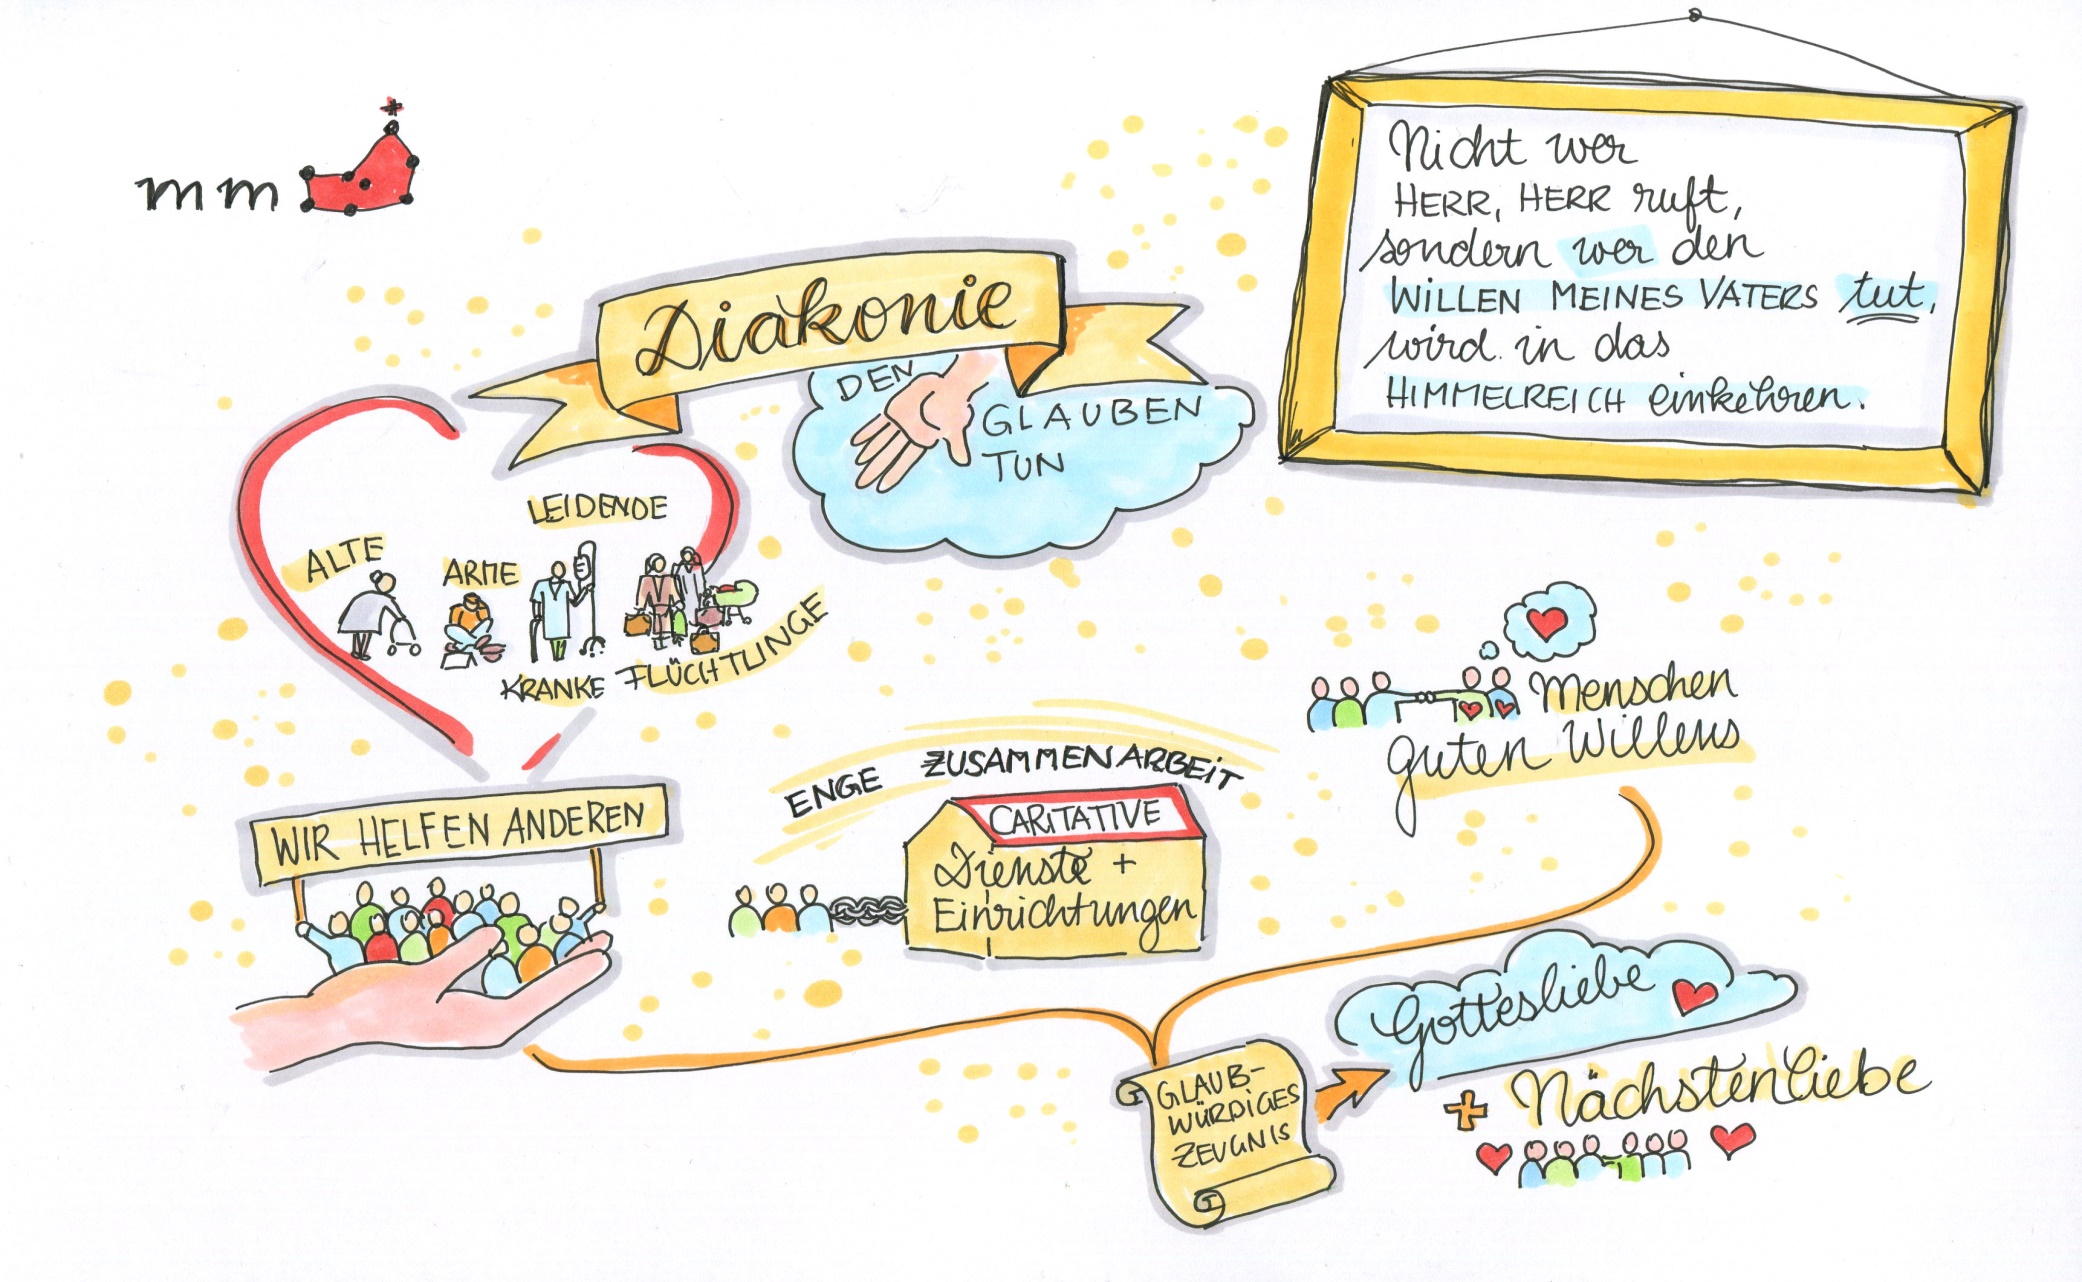 mm
Diakonie
DEN
GLAUBEN
TUN
Nicht wer
HERR, HERR ruft,
sondern wer den
WILLEN MEINES VATERS tut,
wird in das
HIMMELREICH einkehren.
LEIDENDE
ALTE
ARME
KRANKE
FLÜCHTLINGE
WIR HELFEN ANDEREN
ENGE ZUSAMMENARBEIT
CARITATIVE
Dienste +
Einrichtungen
Menschen
guten Willens
GLAUB-
WÜRDIGES
ZEUGNIS
Gottesliebe
+ Nächstenliebe